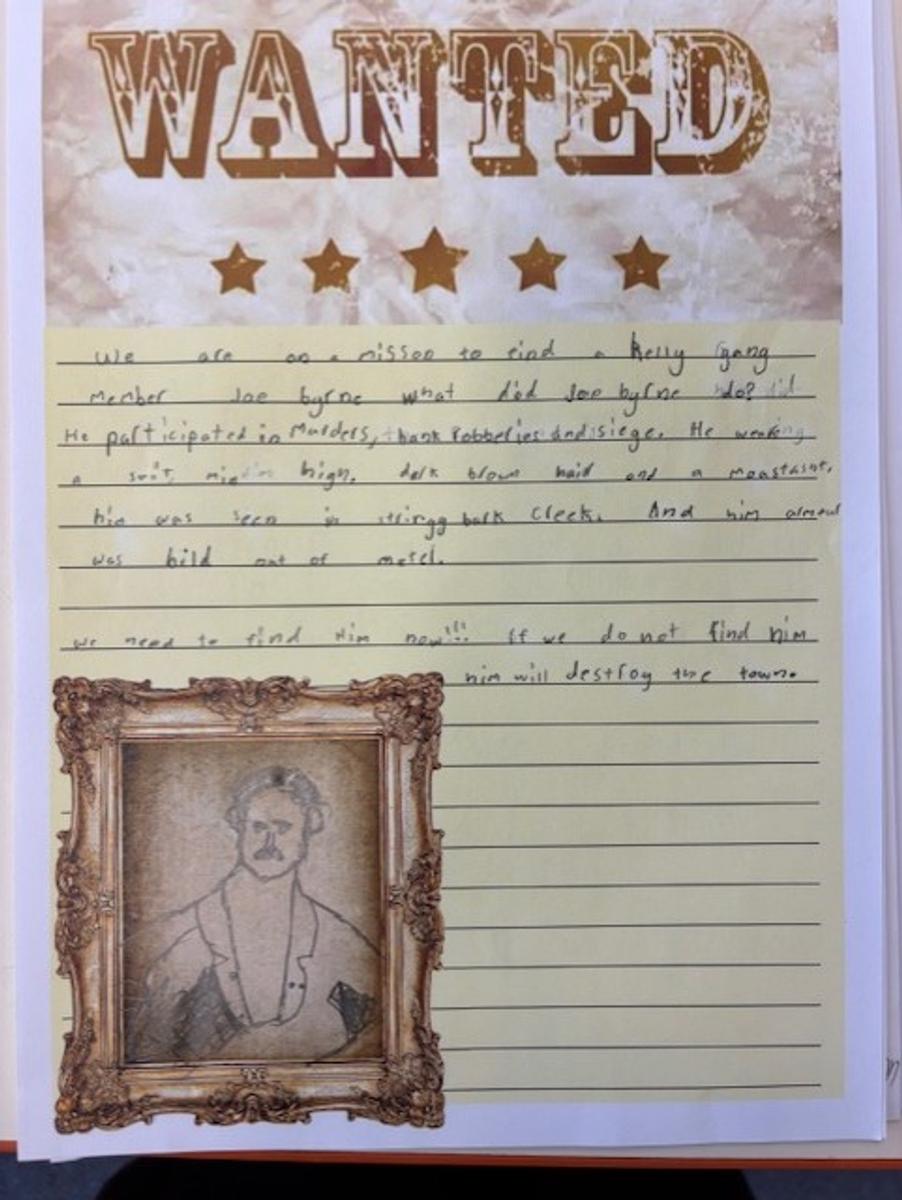 WANTED
We are on a misson to find a Kelly Gang
member Joe byrne what did Joe byrne do? did
He participated in Murders, bank robberies and siege. He wearing
a suit, high. dark brown hair and a
him was seen in stringg bark creek. And him armour
was bild out of metel.
we need to find Him now!!! if we do not find him
him will destroy the town.